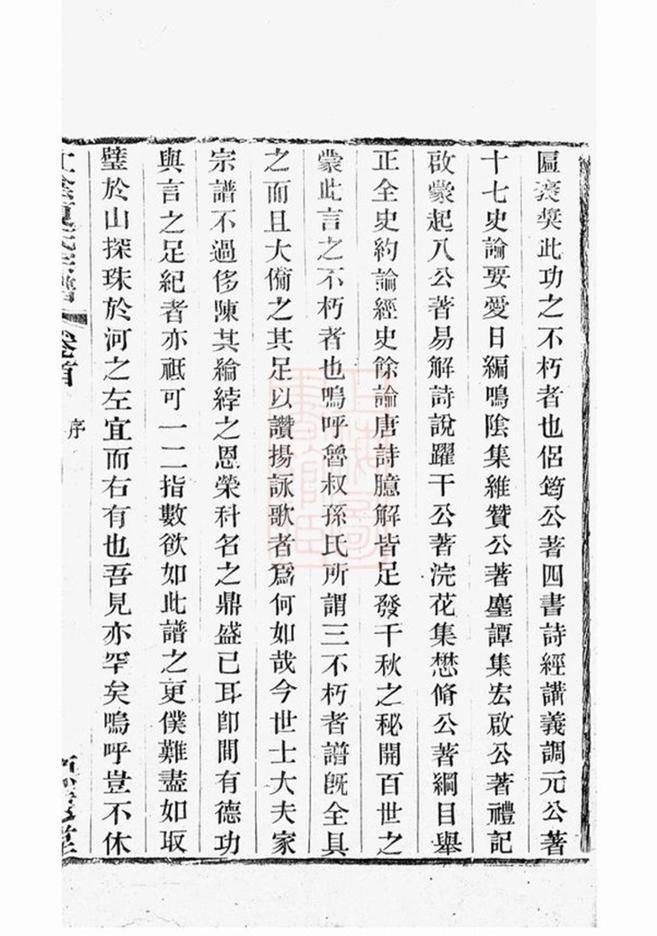 匾褒奬此功之不朽者也侶筠公著四書詩經講義調元公著
十七史論要愛日編鳴陰集維贊公著麈譚集宏啟公著禮記
啟蒙起八公著易解詩說躍干公著浣花集懋脩公著綱目舉
正全史約論經史餘論唐詩臆解皆足發千秋之秘開百世之
蒙此言之不朽者也嗚呼魯叔孫氏所謂三不朽者譜旣全具
之而且大備之其足以讚揚詠歌者爲何如哉今世士大夫家
宗譜不過侈陳其綸綍之恩榮科名之鼎盛已耳卽間有德功
與言之足紀者亦祗可一二指數欲如此譜之更僕難盡如取
璧於山探珠於河之左宜而右有也吾見亦罕矣嗚呼豈不休
氏宗譜 卷首 序 堂